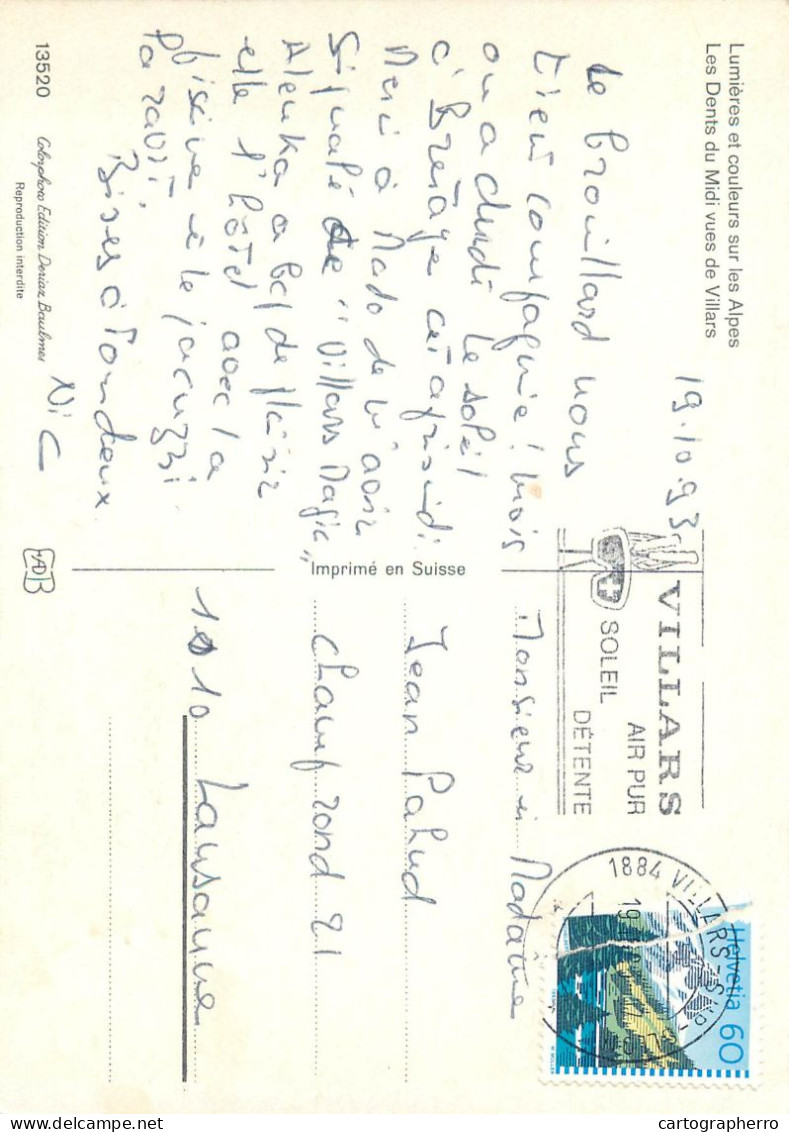 Lumières et couleurs sur les Alpes
Les Dents du Midi vues de Villars
19.10.93
Le brouillard nous
tient compagnie! mais
on a le soleil
Merci à Mado de m'avoir
Signalé de "Villars Magic"
Alenka a bcp de plaisir
elle l'hôtel avec la
piscine et le jacuzzi
Bises à tous deux
Nic
13520
Colorphoto Edition Deriaz Baulmes
Reproduction interdite
Imprimé en Suisse
VILLARS
AIR PUR
SOLEIL
DÉTENTE
1884 VILLARS-S
Helvetia 60
Monsieur et Madame
Jean Pahud
Champ rond 21
1010 Lausanne
cartographerro.com